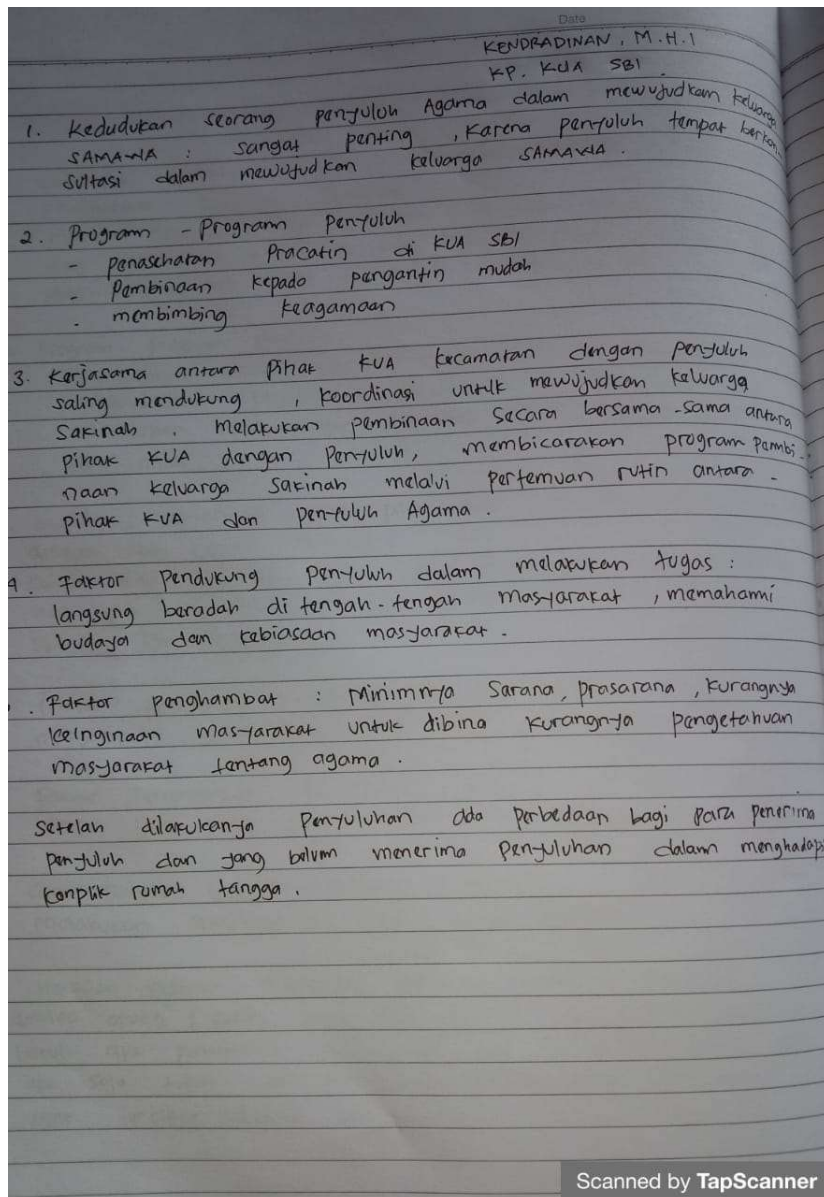 Date
KENDRADINAN, M.H.I
KP. KUA SBI
1. Kedudukan seorang penyuluh Agama dalam mewujudkan keluarga
SAMAWA : sangat penting, karena penyuluh tempat berkon-
sultasi dalam mewujudkan keluarga SAMAWA.
2. Program - Program Penyuluh
- penasehatan Pracatin di KUA SBI
- Pembinaan kepada pengantin mudah
- membimbing keagamaan
3. Kerjasama antara pihak KUA kecamatan dengan penyuluh
saling mendukung, koordinasi untuk mewujudkan keluarga
sakinah. Melakukan pembinaan secara bersama-sama antara
pihak KUA dengan Penyuluh, membicarakan program pembi-
naan keluarga sakinah melalui pertemuan rutin antara -
pihak KUA dan penyuluh Agama.
4. Faktor pendukung penyuluh dalam melakukan tugas :
langsung beradah di tengah-tengah masyarakat, memahami
budaya dan kebiasaan masyarakat.
. Faktor penghambat : Minimnya Sarana, prasarana, kurangnya
keinginaan masyarakat untuk dibina kurangnya pengetahuan
masyarakat tentang agama.
Setelah dilakukannya penyuluhan ada perbedaan bagi para penerima
penyuluh dan yang belum menerima penyuluhan dalam menghadapi
konplik rumah tangga.
Scanned by TapScanner